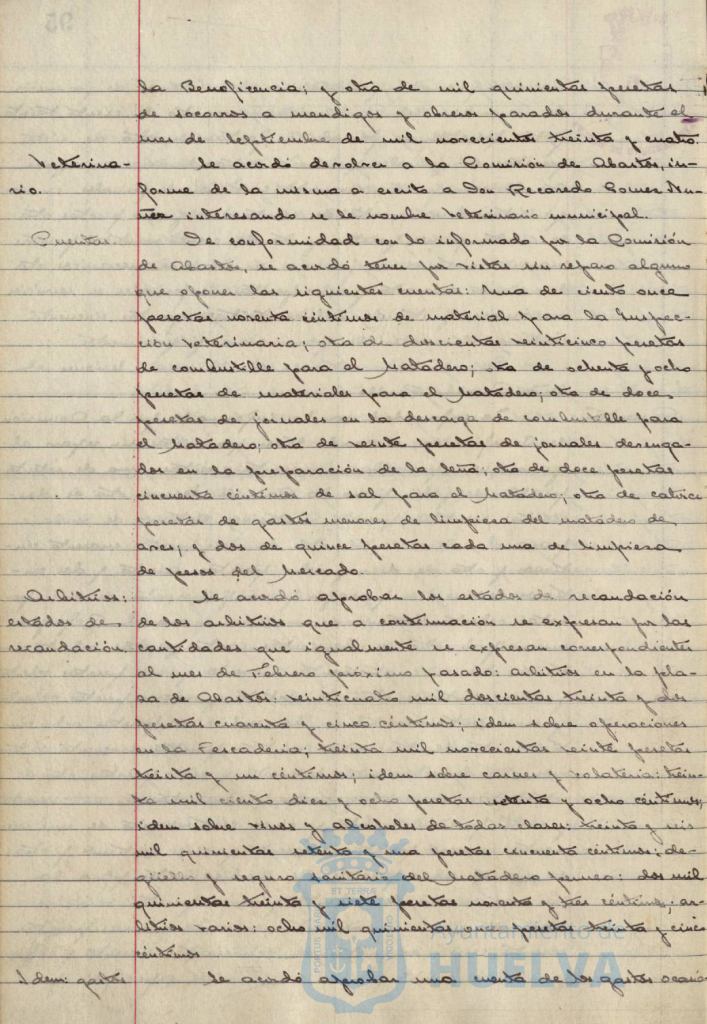 la Beneficencia; y otra de mil quinientas pesetas
de socorros a mendigos y obreros parados durante el
mes de Septiembre de mil novecientos treinta y cuatro.
Veterina-
rio.
Se acordó devolver a la Comisión de Abastos, in-
forme de la misma a escrito a Don Recaredo Gomez Nu-
ñez interesando se le nombre Veterinario municipal.
Cuentas.
De conformidad con lo informado por la Comisión
de Abastos, se acordó tener por vistas sin reparo alguno
que oponer las siguientes cuentas: Una de ciento once
pesetas noventa céntimos de material para la Inspec-
ción Veterinaria; otra de doscientas veinticinco pesetas
de combustible para el Matadero; otra de ochenta y ocho
pesetas de materiales para el Matadero; otra de doce
pesetas de jornales en la descarga de combustible para
el Matadero; otra de veinte pesetas de jornales devenga-
dos en la preparación de la leña; otra de doce pesetas
cincuenta céntimos de sal para el Matadero; otra de catorce
pesetas de gastos menores de limpieza del matadero de
aves; y dos de quince pesetas cada una de limpieza
de pesos del Mercado.
Arbitrios:
estados de
recaudación.
Se acordó aprobar los estados de recaudación
de los arbitrios que a continuación se expresan por las
cantidades que igualmente se expresan correspondientes
al mes de Febrero próximo pasado: arbitrios en la pla-
za de Abastos: veinticuatro mil doscientas treinta y dos
pesetas cuarenta y cinco céntimos; idem sobre operaciones
en la Pescaderia; treinta mil novecientas veinte pesetas
treinta y un céntimos; idem sobre carnes y volateria: trein-
ta mil ciento diez y ocho pesetas setenta y ocho céntimos;
idem sobre vinos y alcoholes de todas clases: treinta y seis
mil quinientas setenta y una pesetas cincuenta céntimos; de-
güello y seguro sanitario del Matadero porcuno: dos mil
quinientas treinta y siete pesetas noventa y tres céntimos; ar-
bitrios varios: ocho mil quinientas once pesetas treinta y cinco
céntimos
Idem: gastos
Se acordó aprobar una cuenta de los gastos ocasio-
Ayuntamiento de
HUELVA